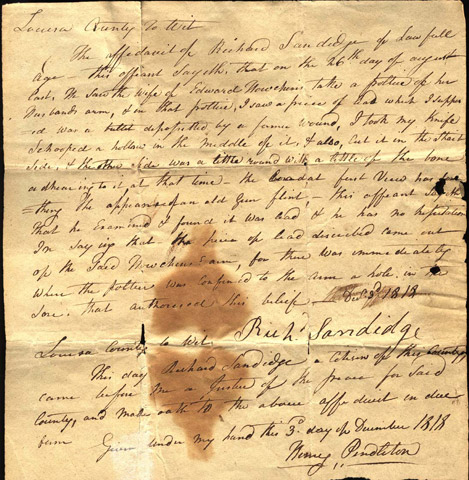 Louisa County to Wit
The affidavit of Richard Sandidge of Lawfull
Age - this affiant Sayeth, that on the 26th day of august
Last, He Saw the Wife of Edward Houchens take a poltice of her
Husbands arm, & in that poltice, I saw a piece of Lead which I suppos
=ed was a bullet deposited by a former wound, I took my knife
Schooped a hollow in the middle of it, & also, Cut it in the
Side, & the other Side was a little round with a little of the bone
adhearing to it at that time - the Lead at first View has
=thing the appearance of an old Gun flint, - this affiant
that he Examined & found it was lead & he has no hesitation
In Saying that the piece of lead described came out
of the Said Houchens arm, for there was immediately
where the poltice was Confined to the arm a hole, in
Sore, that authorised this belief - Decr 3d, 1818
Richd Sandidge
Louisa County to Wit
This day Richard Sandidge a citizen of this County
came before me a Justice of the peace for Said
County, and made oath to the above affidavit in due
form Given under my hand this 3d. day of December 1818
Henry Pendleton